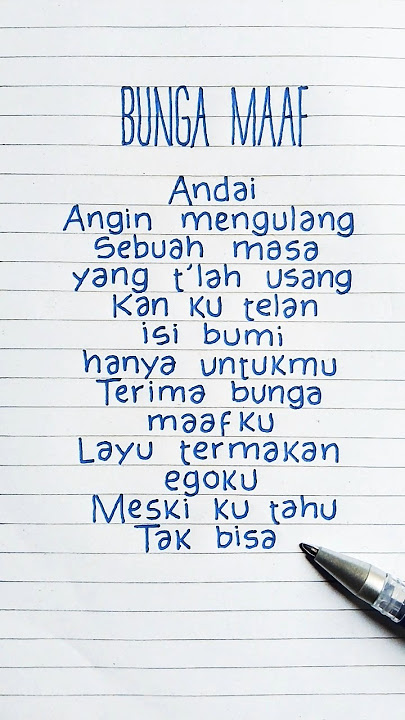 BUNGA MAAF
Andai
Angin mengulang
Sebuah masa
yang t'lah usang
Kan ku telan
isi bumi
hanya untukmu
Terima bunga
maafku
Layu termakan
egoku
Meski ku tahu
Tak bisa